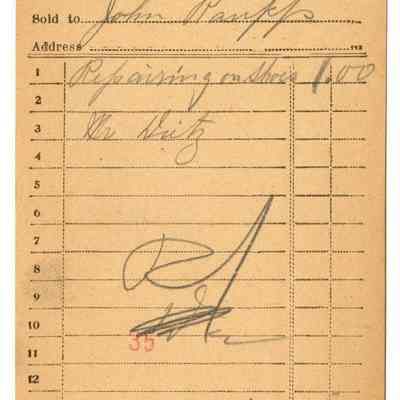 Sold to John Paupp
Address
1 Repairing on Shoes 1.00
2
3 Mr Dietz
4
5
6
7
8
9
10
35
11
12